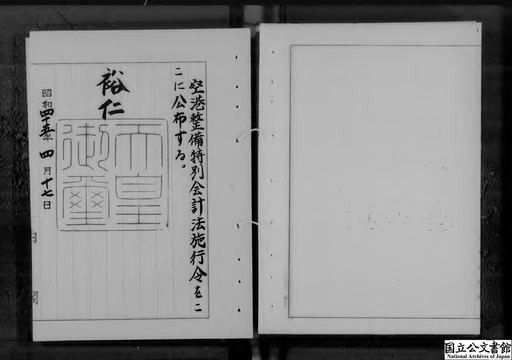 空港整備特別会計法施行令をこ
こに公布する。
裕仁
天皇
御璽
昭和四十五年四月十七日
内閣
国立公文書館
National Archives of Japan